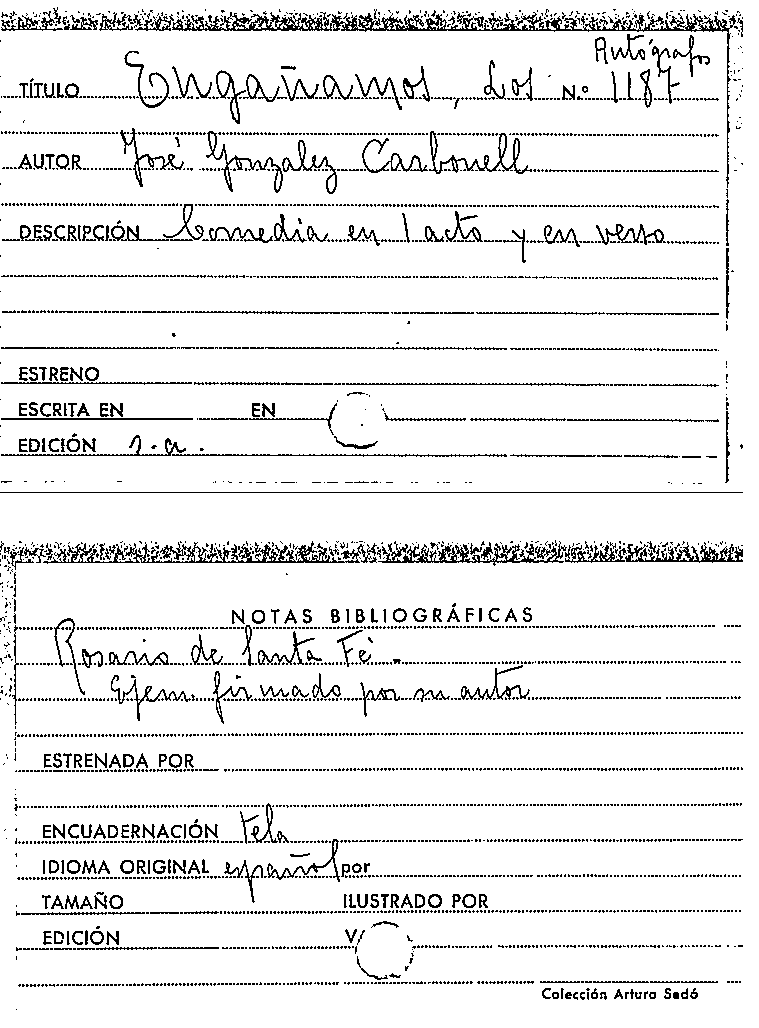 Autógrafos
TÍTULO Engañamos, Los N.º 1187
AUTOR José Gonzalez Carbonell
DESCRIPCIÓN Comedia en 1 acto y en verso
ESTRENO
ESCRITA EN EN
EDICIÓN s.a.
NOTAS BIBLIOGRÁFICAS
Rosario de Santa Fé.
Ejem. firmado por su autor
ESTRENADA POR
ENCUADERNACIÓN tela
IDIOMA ORIGINAL español por
TAMAÑO ILUSTRADO POR
EDICIÓN V/
Colección Arturo Sedó